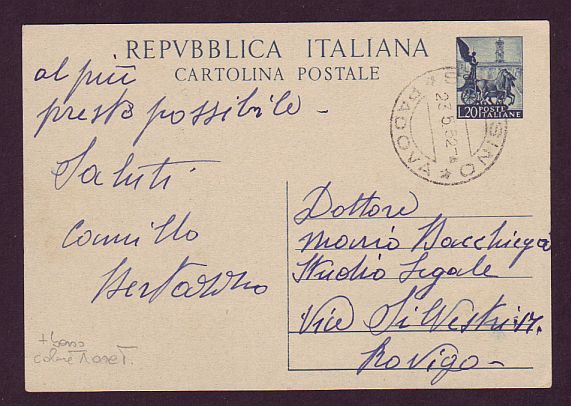 REPVBBLICA ITALIANA
CARTOLINA POSTALE
L.20 POSTE
ITALIANE
SINO * PADOVA * S
23.5.52-7
al più
presto possibile –
Saluti
Camillo
Dottore
Mario Bacchiega
Studio Legale
Vice Silvestri 17.
Rovigo –